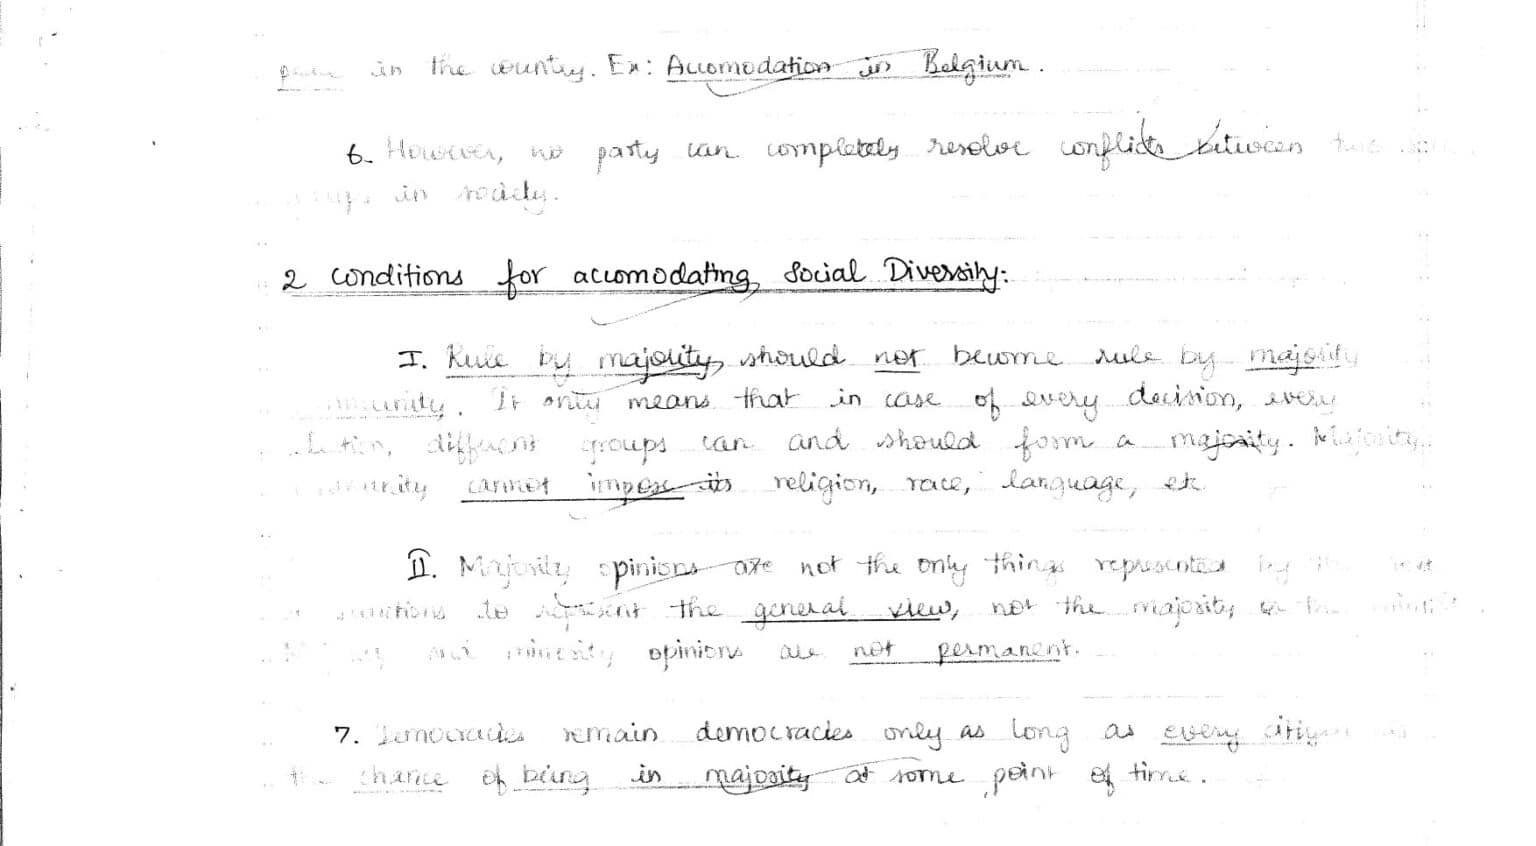 in the country. Ex: Accomodation in Belgium.
6. However, no party can completely resolve conflicts between
in society.
2 conditions for accomodating Social Diversity:
I. Rule by majority should not become rule by majority
It only means that in case of every decision, every
different groups can and should form a majority. Majority
cannot impose its religion, race, language, etc
II. Majority opinions are not the only things represented by
to represent the general view, not the majority
and minority opinions are not permanent.
7. Democracies remain democracies only as long as every citizen
chance of being in majority at some point of time.